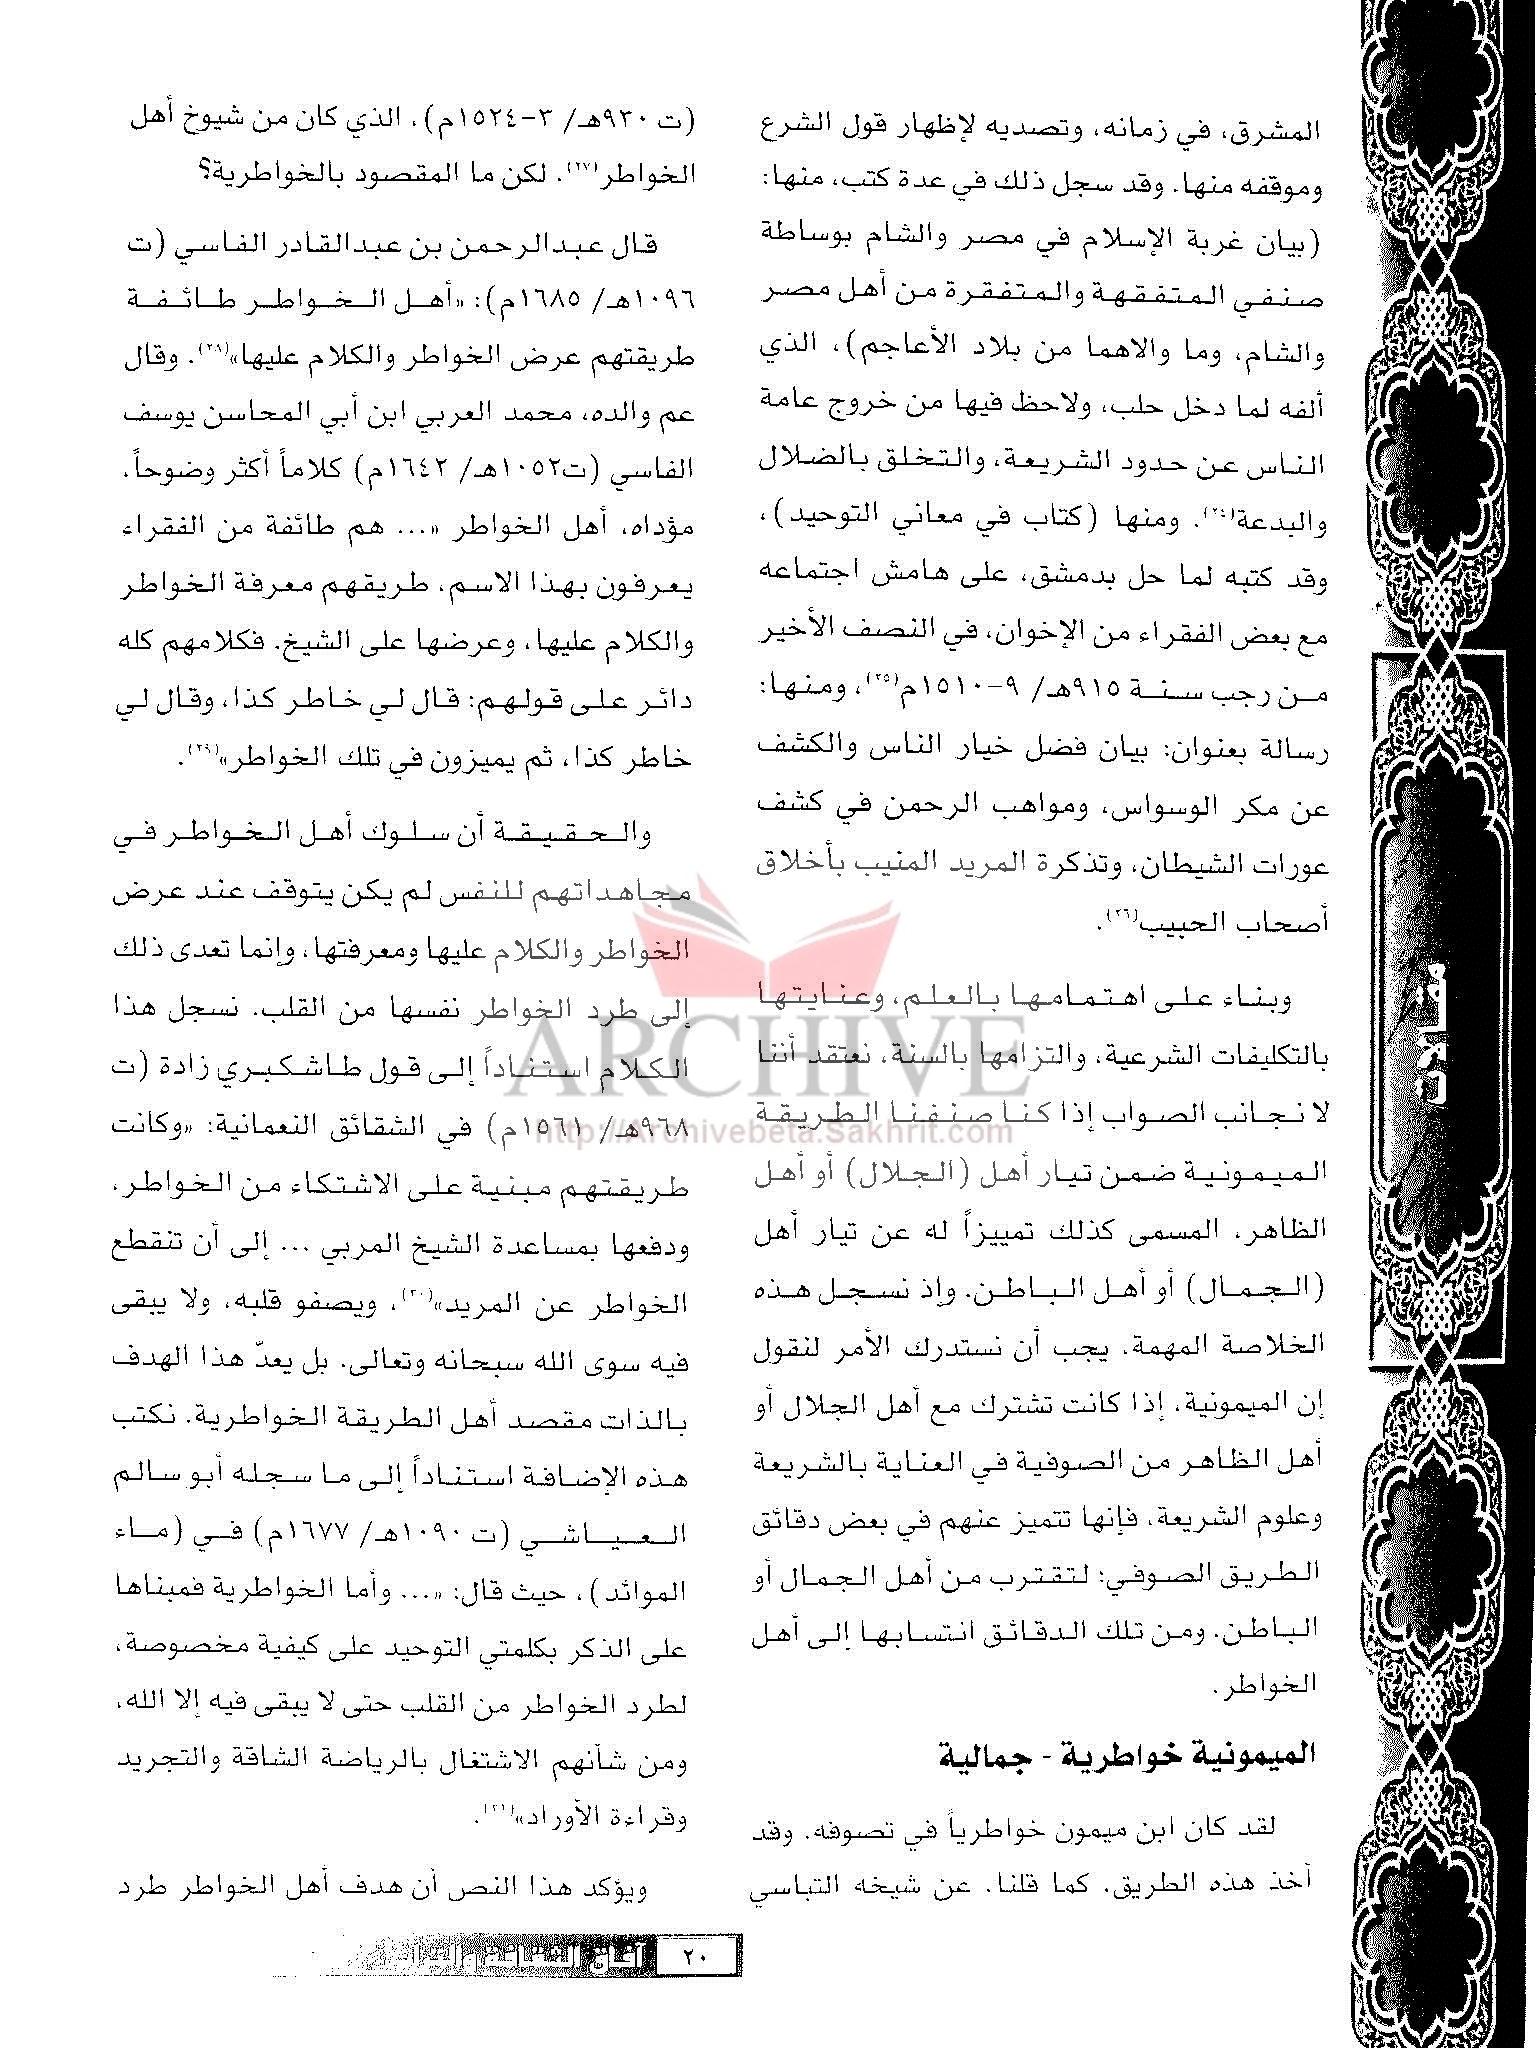 المشرق، في زمانه، وتصديه لإظهار قول الشرع
وموقفه منها. وقد سجل ذلك في عدة كتب، منها:
(بيان غربة الإسلام في مصر والشام بوساطة
صنفي المتفقهة والمتفقرة من أهل مصر
والشام، وما والاهما من بلاد الأعاجم)، الذي
ألفه لما دخل حلب، ولاحظ فيها من خروج عامة
الناس عن حدود الشريعة، والتخلق بالضلال
والبدعة(٢٤). ومنها (كتاب في معاني التوحيد)،
وقد كتبه لما حل بدمشق، على هامش اجتماعه
مع بعض الفقراء من الإخوان، في النصف الأخير
من رجب سنة ٩١٥هـ/ ٩-١٥١٠م(٢٥)، ومنها:
رسالة بعنوان: بيان فضل خيار الناس والكشف
عن مكر الوسواس، ومواهب الرحمن في كشف
عورات الشيطان، وتذكرة المريد المنيب بأخلاق
أصحاب الحبيب(٢٦).
وبناء على اهتمامها بالعلم، وعنايتها
بالتكليفات الشرعية، والتزامها بالسنة، نعتقد أننا
لا نجانب الصواب إذا كنا صنفنا الطريقة
الميمونية ضمن تيار أهل (الجلال) أو أهل
الظاهر، المسمى كذلك تمييزاً له عن تيار أهل
(الجمال) أو أهل الباطن. وإذ نسجل هذه
الخلاصة المهمة، يجب أن نستدرك الأمر لنقول
إن الميمونية، إذا كانت تشترك مع أهل الجلال أو
أهل الظاهر من الصوفية في العناية بالشريعة
وعلوم الشريعة، فإنها تتميز عنهم في بعض دقائق
الطريق الصوفي: لتقترب من أهل الجمال أو
الباطن. ومن تلك الدقائق انتسابها إلى أهل
الخواطر.
الميمونية خواطرية - جمالية
لقد كان ابن ميمون خواطرياً في تصوفه. وقد
أخذ هذه الطريق، كما قلنا، عن شيخه التباسي
(ت ٩٣٠هـ/ ٣-١٥٢٤م)، الذي كان من شيوخ أهل
الخواطر(٢٧). لكن ما المقصود بالخواطرية؟
قال عبدالرحمن بن عبدالقادر الفاسي (ت
١٠٩٦هـ/ ١٦٨٥م): «أهل الخواطر طائفة
طريقتهم عرض الخواطر والكلام عليها»(٢٨). وقال
عم والده، محمد العربي ابن أبي المحاسن يوسف
الفاسي (ت١٠٥٢هـ/ ١٦٤٢م) كلاماً أكثر وضوحاً،
مؤداه، أهل الخواطر «... هم طائفة من الفقراء
يعرفون بهذا الاسم، طريقهم معرفة الخواطر
والكلام عليها، وعرضها على الشيخ. فكلامهم كله
دائر على قولهم: قال لي خاطر كذا، وقال لي
خاطر كذا، ثم يميزون في تلك الخواطر»(٢٩).
والحقيقة أن سلوك أهل الخواطر في
مجاهداتهم للنفس لم يكن يتوقف عند عرض
الخواطر والكلام عليها ومعرفتها، وإنما تعدى ذلك
إلى طرد الخواطر نفسها من القلب. نسجل هذا
الكلام استناداً إلى قول طاشكبري زادة (ت
٩٦٨هـ/ ١٥٦١م) في الشقائق النعمانية: «وكانت
طريقتهم مبنية على الاشتكاء من الخواطر،
ودفعها بمساعدة الشيخ المربي ... إلى أن تنقطع
الخواطر عن المريد»(٣٠)، ويصفو قلبه، ولا يبقى
فيه سوى الله سبحانه وتعالى. بل يعدّ هذا الهدف
بالذات مقصد أهل الطريقة الخواطرية. نكتب
هذه الإضافة استناداً إلى ما سجله أبو سالم
العياشي (ت ١٠٩٠هـ/ ١٦٧٧م) في (ماء
الموائد)، حيث قال: «... وأما الخواطرية فمبناها
على الذكر بكلمتي التوحيد على كيفية مخصوصة،
لطرد الخواطر من القلب حتى لا يبقى فيه إلا الله،
ومن شأنهم الاشتغال بالرياضة الشاقة والتجريد
وقراءة الأوراد»(٣١).
ويؤكد هذا النص أن هدف أهل الخواطر طرد
مقالات
ARCHIVE
http://Archivebeta.Sakhrit.com
٢٠
آفاق الثقافة والتراث